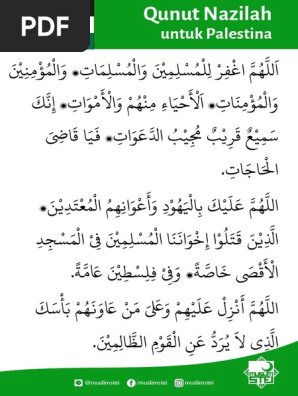 PDF
Qunut Nazilah
untuk Palestina
اَللَّهُمَّ اغْفِرْ لِلْمُسْلِمِيْنَ وَالْمُسْلِمَاتِ* وَالْمُؤْمِنِيْنَ
وَالْمُؤْمِنَاتِ* اَلْأَحْيَاءِ مِنْهُمْ وَالْأَمْوَاتِ* إِنَّكَ
سَمِيْعٌ قَرِيْبٌ مُجِيْبُ الدَّعَوَاتِ* فَيَا قَاضِيَ
الْحَاجَاتِ.
اللَّهُمَّ عَلَيْكَ بِالْيَهُوْدِ وَأَعْوَانِهِمُ الْمُعْتَدِيْنَ*
الَّذِيْنَ قَتَلُوْا إِخْوَانَنَا الْمُسْلِمِيْنَ فِيْ الْمَسْجِدِ
الْأَقْصَى خَاصَّةً* وَفِيْ فِلِسْطِيْنَ عَامَّةً.
اللَّهُمَّ أَنْزِلْ عَلَيْهِمْ وَعَلَىَ مَنْ عَاوَنَهُمْ بَأْسَكَ
الَّذِي لاَ يُرَدُّ عَنِ الْقَوْمِ الظَّالِمِيْنَ.
@muslimstei /muslimstei @muslimstei